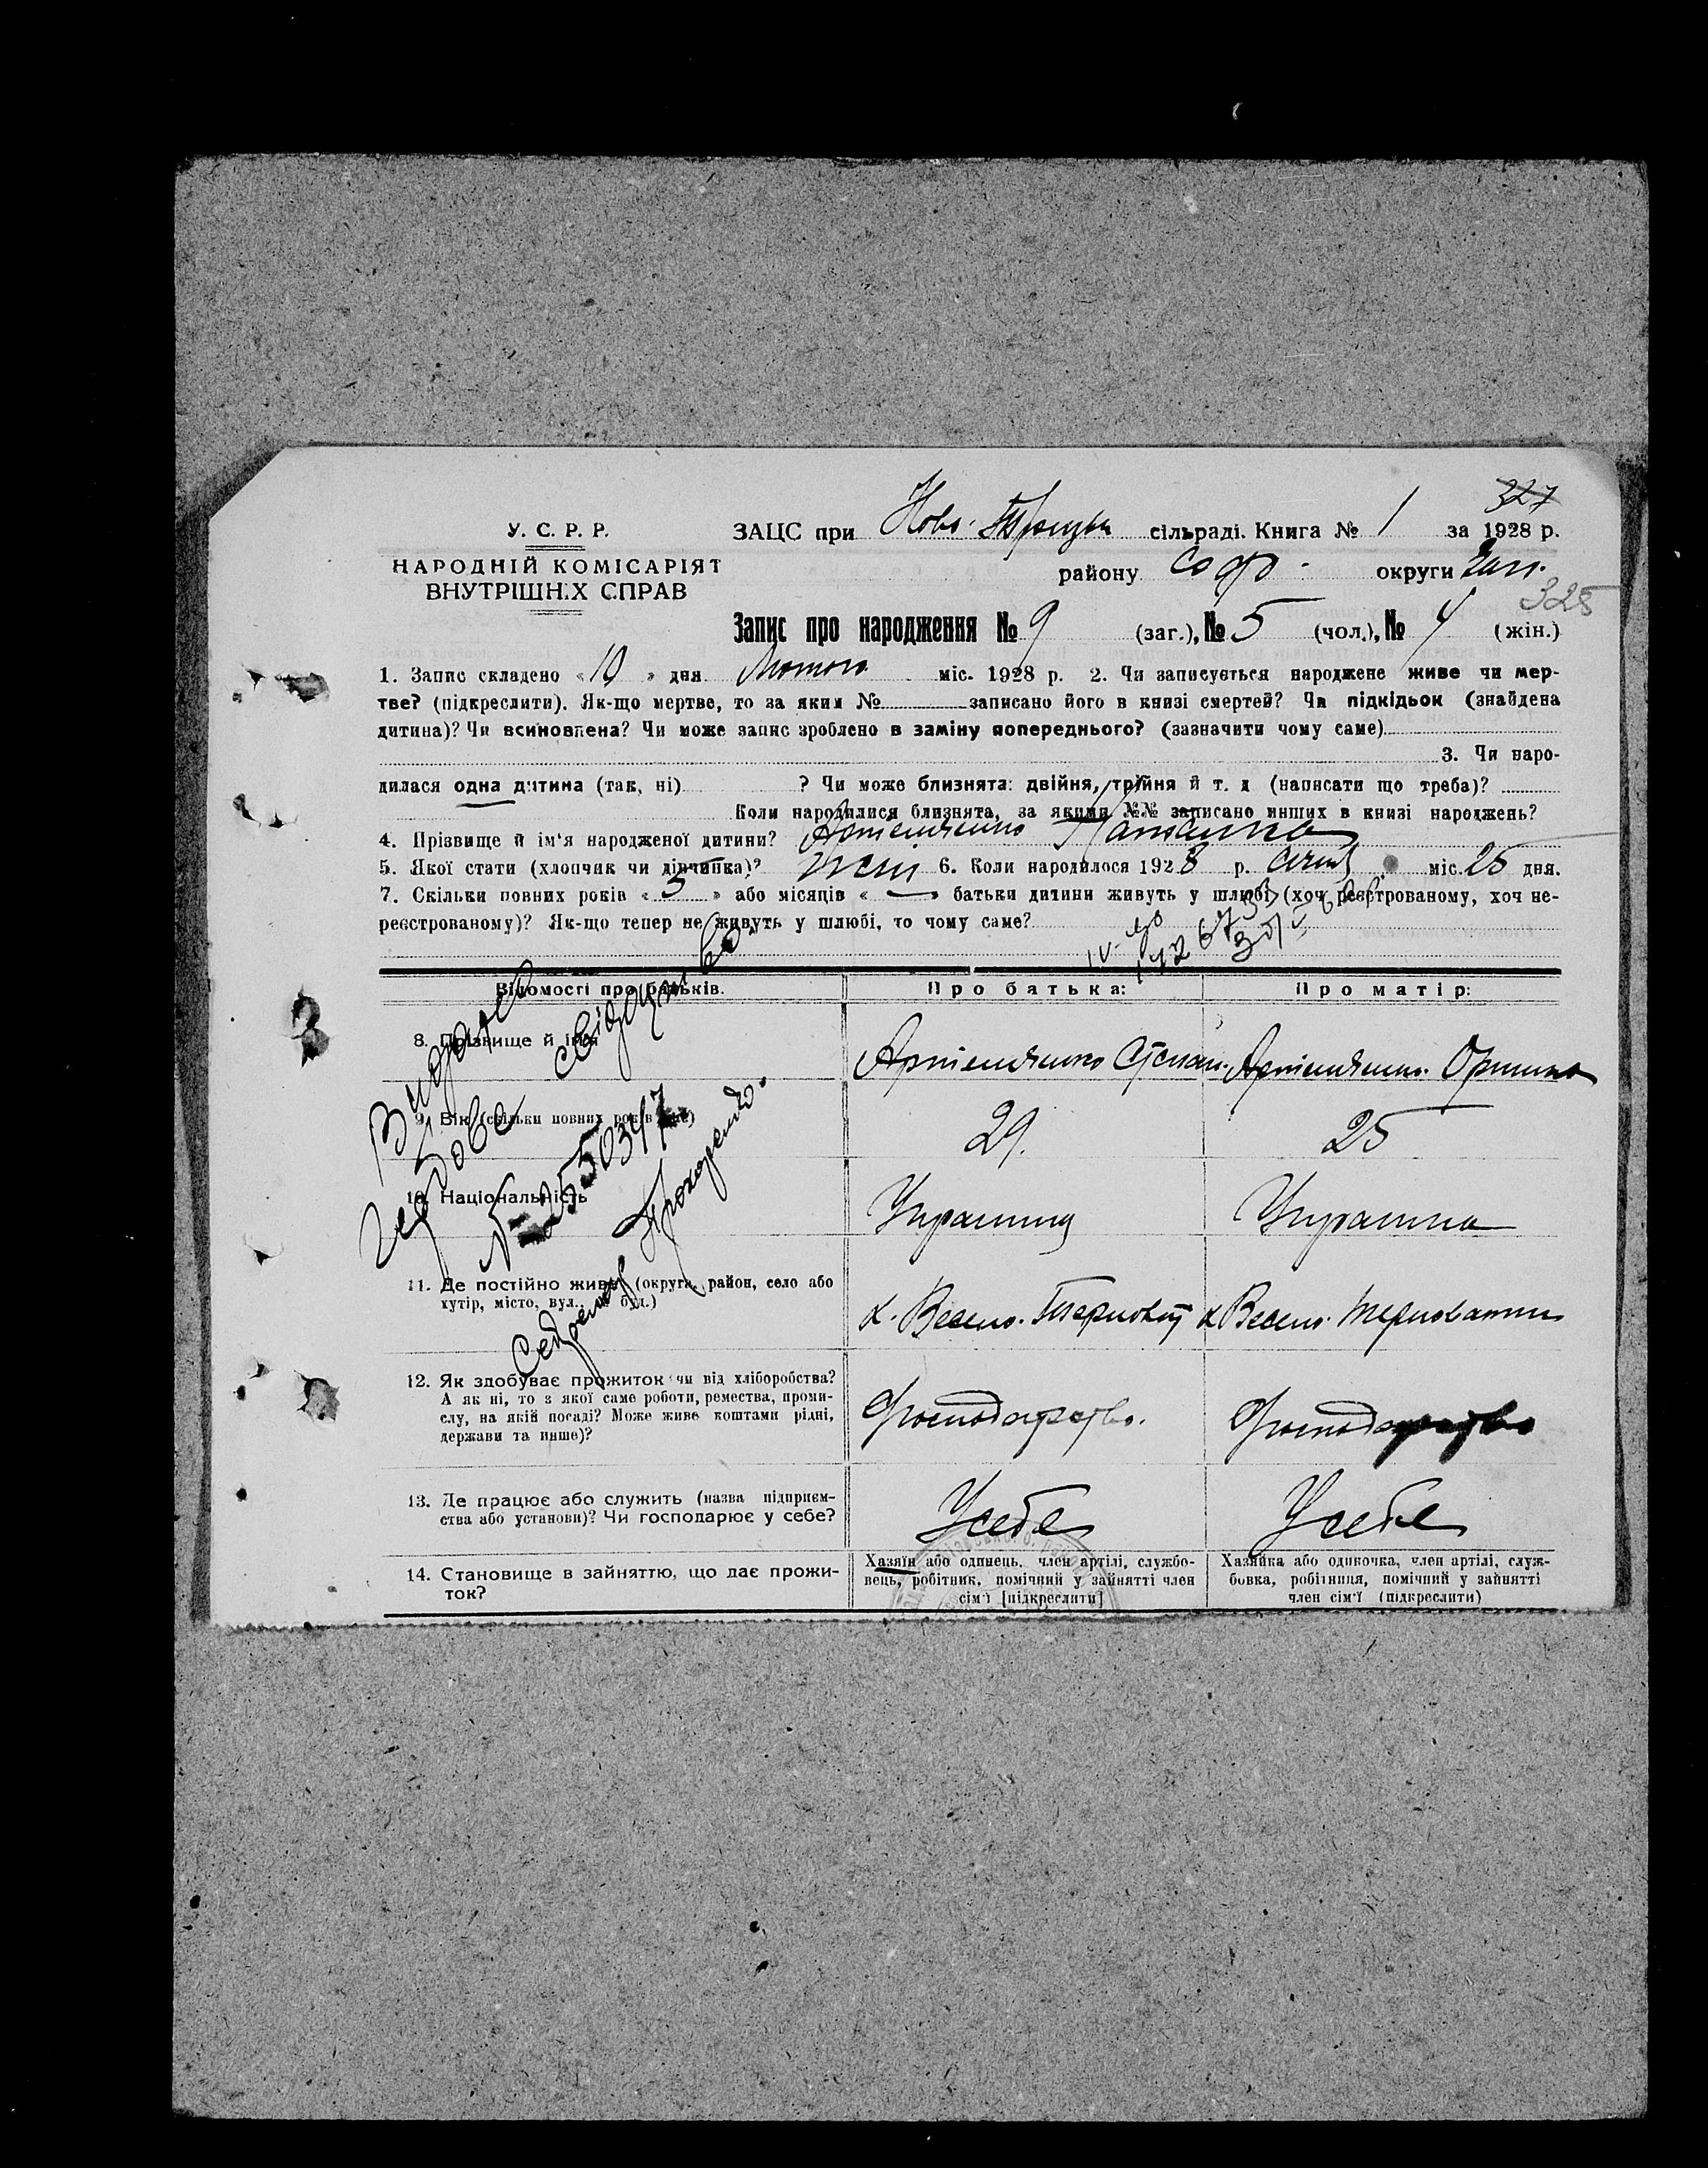 327
У. С. Р. Р.
НАРОДНІЙ КОМІСАРІЯТ
ВНУТРІШНІХ СПРАВ
ЗАЦС при Ново-Троицьк сільраді. Книга № 1 за 1928 р.
району Соф- округи Зап.
325
Запис про народження № 9 (заг.), № 5 (чол.), № 4 (жін.)
1. Запис складено «10» дня Лютого міс. 1928 р. 2. Чи записується народжене живе чи мер-
тве? (підкреслити). Як-що мертве, то за яким № записано його в книзі смертей? Чи підкідьок (знайдена
дитина)? Чи всиновлена? Чи може запис зроблено в заміну попереднього? (зазначити чому саме)
3. Чи наро-
дилася одна дитина (так, ні) ? Чи може близнята: двійня, трійня й т. д (написати що треба)?
Коли народилися близнята, за якими №№ записано инших в книзі народжень?
4. Прізвище й ім'я народженої дитини?
5. Якої стати (хлопчик чи дівчинка)? жен 6. Коли народилося 1928 р. січня міс. 25 дня.
7. Скільки повних років «5» або місяців «—» батьки дитини живуть у шлюбі (хоч реєстрованому, хоч не-
реєстрованому)? Як-що тепер не живуть у шлюбі, то чому саме?
Відомості про батьків. Про батька: Про матір:
8. Прізвище й ім'я
9. Вік (скільки повних років має) 29. 25
10. Національність Украинц Украинка
11. Де постійно живе (округа, район, село або
хутір, місто, вул., № буд.) х. Весело. Терноват х Весело. Терноватки
12. Як здобуває прожиток чи від хліборобства?
А як ні, то з якої саме роботи, ремества, проми-
слу, на якій посаді? Може живе коштами рідні,
держави та инше)? Господарство. Господарство
13. Де працює або служить (назва підприєм-
ства або установи)? Чи господарює у себе? У себе У себе
14. Становище в зайняттю, що дає прожи-
ток?
Хазяїн або одинець, член артілі, службо-
вець, робітник, помічний у зайнятті член
сім'ї [підкреслити]
Хазяйка або одиночка, член артілі, служ-
бовка, робітниця, помічний у зайнятті
член сім'ї (підкреслити)